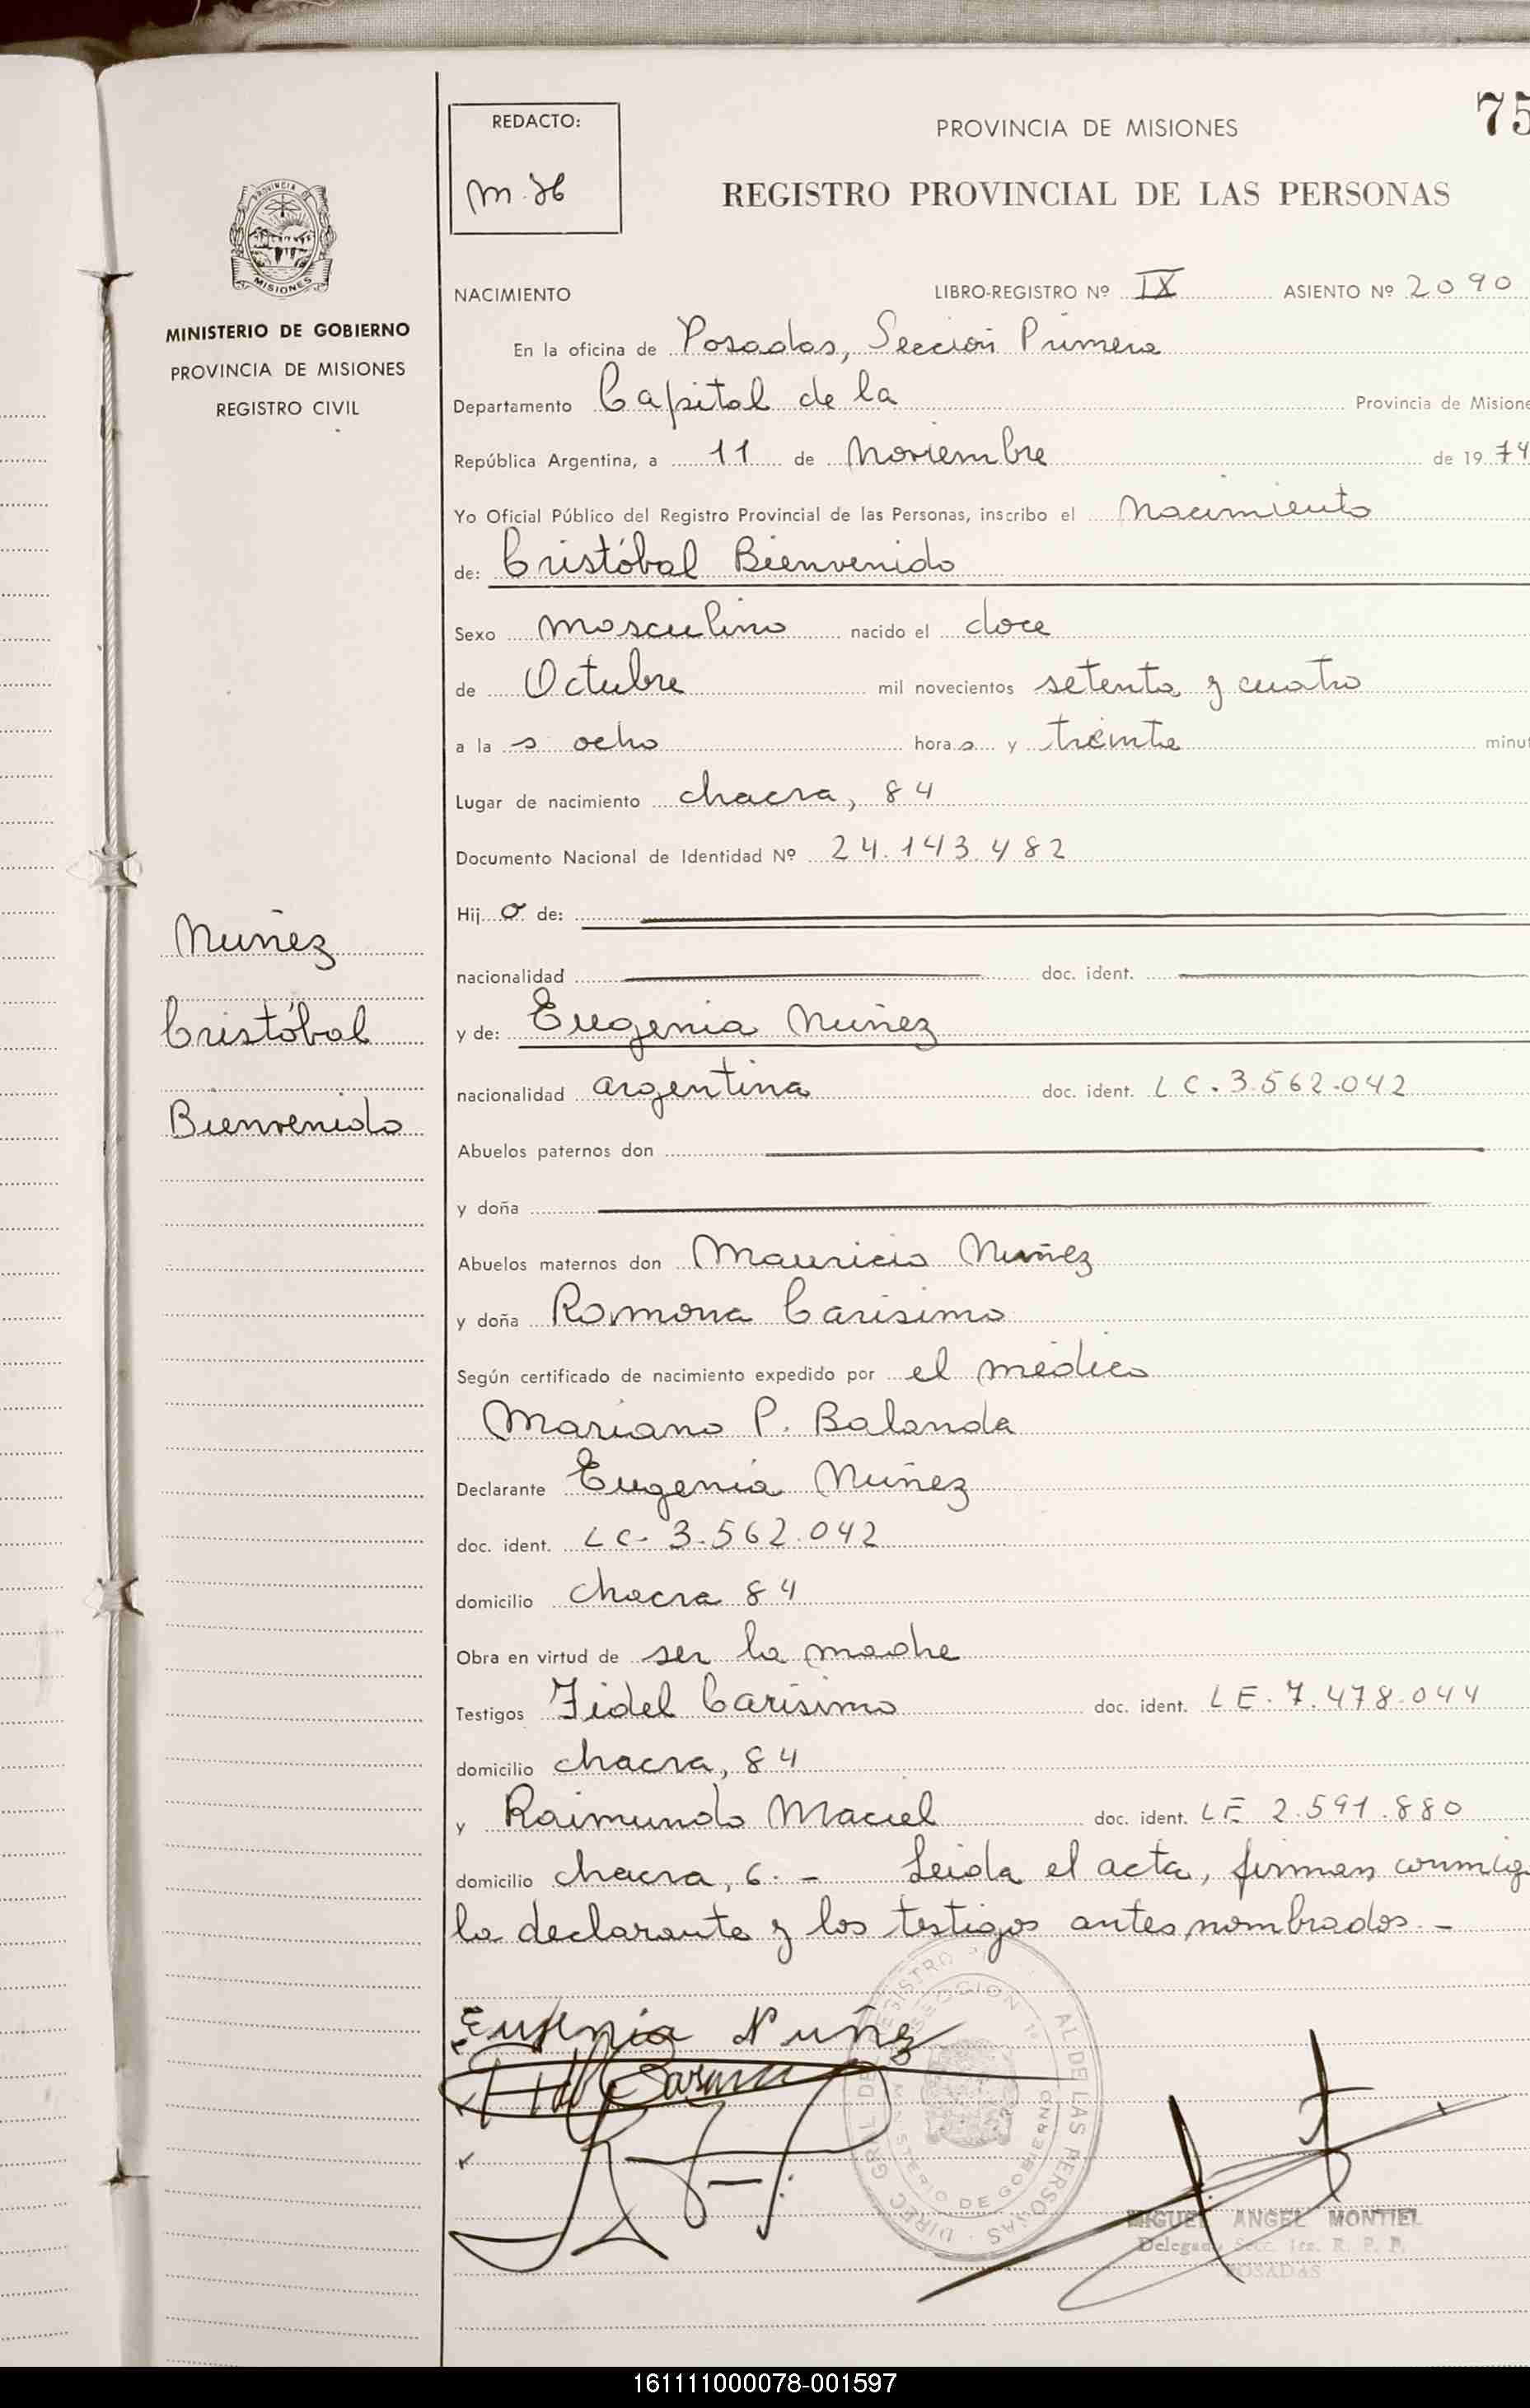 REDACTO:
PROVINCIA DE MISIONES
75
REGISTRO PROVINCIAL DE LAS PERSONAS
PROVINCIA DE
MISIONES
MINISTERIO DE GOBIERNO
PROVINCIA DE MISIONES
REGISTRO CIVIL
NACIMIENTO LIBRO-REGISTRO Nº IX ASIENTO Nº 2090
En la oficina de Posadas, Sección Primera
Departamento Capital de la Provincia de Misione
República Argentina, a 11 de Noviembre de 1974
Yo Oficial Público del Registro Provincial de las Personas, inscribo el Nacimiento
de: Cristóbal Bienvenido
Sexo masculino nacido el doce
de Octubre mil novecientos setenta y cuatro
a la s ocho hora s y treinta minut
Lugar de nacimiento chacra, 84
Documento Nacional de Identidad Nº 24.143.482
Hij o de:
nacionalidad doc. ident.
Nuñez
Cristóbal
Bienvenido
y de: Eugenia Nuñez
nacionalidad argentina doc. ident. LC. 3.562.042
Abuelos paternos don
y doña
Abuelos maternos don Mauricio Nuñez
y doña Ramona Carísimo
Según certificado de nacimiento expedido por el médico
Mariano P. Balanda
Declarante Eugenia Nuñez
doc. ident. LC- 3.562.042
domicilio chacra 84
Obra en virtud de ser la madre
Testigos Fidel Carísimo doc. ident. LE. 7.478.044
domicilio chacra, 84
y Raimundo Maciel doc. ident. LE 2.591.880
domicilio chacra, 6. - Leida el acta, firman conmig
la declarante y los testigos antes nombrados. -
Eugenia Nuñez
DIREC. GRAL DEL REGISTRO PROVINCIAL DE LAS PERSONAS
SECCION 1ª
MINISTERIO DE GOBIERNO
MIGUEL ANGEL MONTIEL
Delegado Secc. 1ra. R. P. P.
POSADAS
161111000078-001597